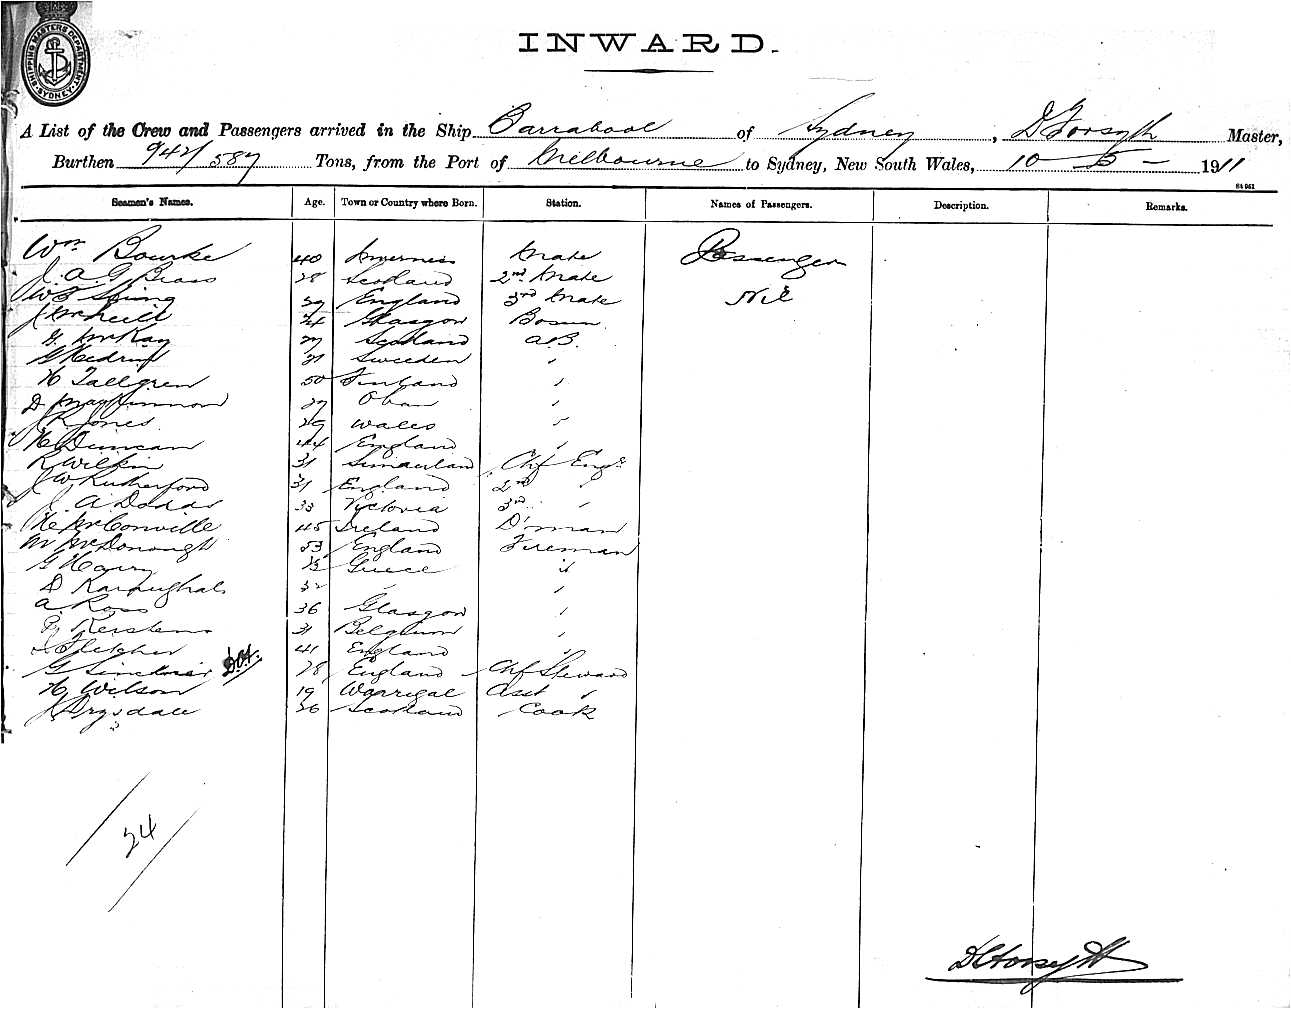 SHIPPING MASTERS DEPARTMENT SYDNEY
INWARD.
A List of the Crew and Passengers arrived in the Ship Barrabool of Sydney, D Forsyth Master,
Burthen 942/587 Tons, from the Port of Melbourne to Sydney, New South Wales, 10 - 5 - 1911
Seamen's Names. Age. Town or Country where Born. Station. Names of Passengers. Description. Remarks.
Wm Bourke 40 Inverness Mate Passenger
J. A. G. 28 Scotland 2nd Mate
W 29 England 3rd Mate Nil
J McNeill Glasgow Bosun
G. McKay 27 Scotland A.B.
G 21 Sweden "
H Tallgren 50 Finland "
D MacKinnon 27 Oban "
J R Jones 29 Wales "
H Duncan 44 England "
R Wilkin 31 Chf Engr
J W Rutherford 31 England 2nd "
J. A Dodds 33 Victoria 3rd "
McConville 45 Ireland D'man
M McDonough 53 England Fireman
G Harry Greece "
D 32 " "
A. Ross 36 Glasgow "
Kerstens 31 Belgium "
Fletcher 41 England "
G Sinclair 28 England Chf Steward
H Wilson 19 Warrigal Asst "
J Drysdale 26 Scotland Cook
24
D Forsyth